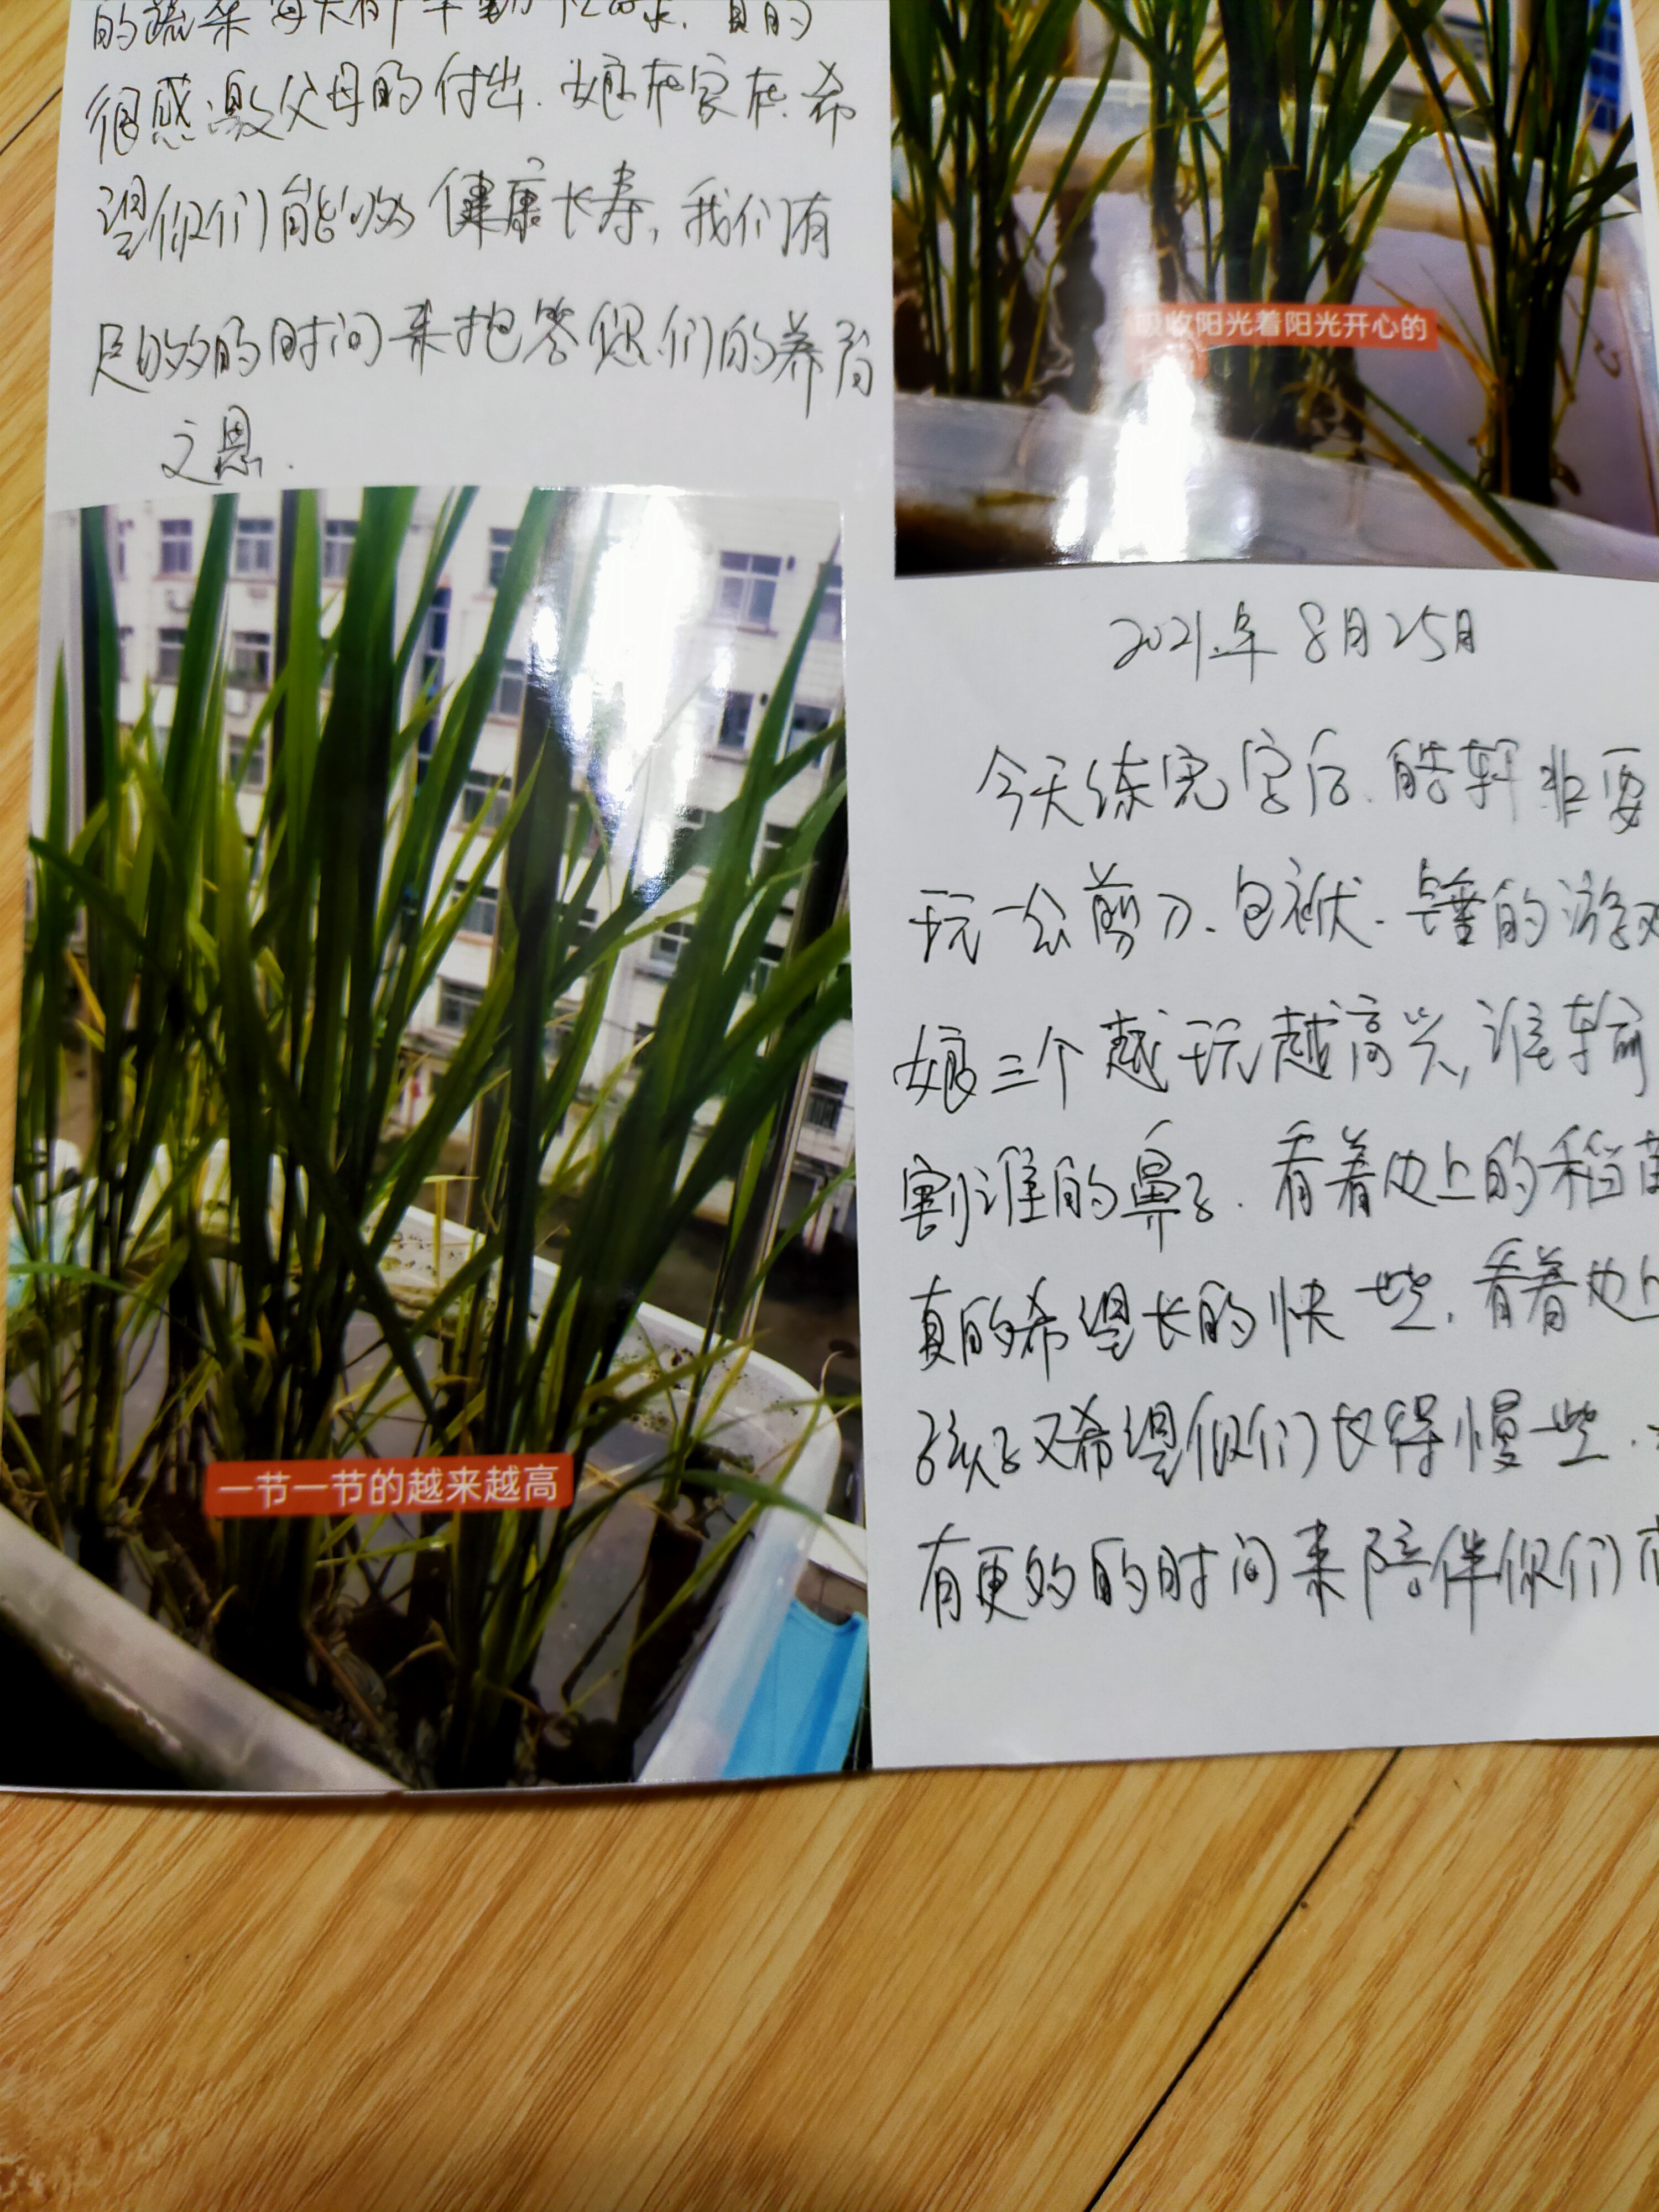 很感激父母的付出.娘在家在.希
望你们能够健康长寿,我们有
足够的时间来抱答您们的养育
之恩.
一节一节的越来越高
吸收阳光着阳光开心的
2021.年8月25日
今天练完字后.皓轩非要
玩一会剪刀.包袱.锤的游戏
娘三个越玩越高兴,谁输
割谁的鼻子.看着边上的稻苗
真的希望长的快一些.看着边上
孩子又希望你们长得慢一些.
有更多的的时间来陪伴你们